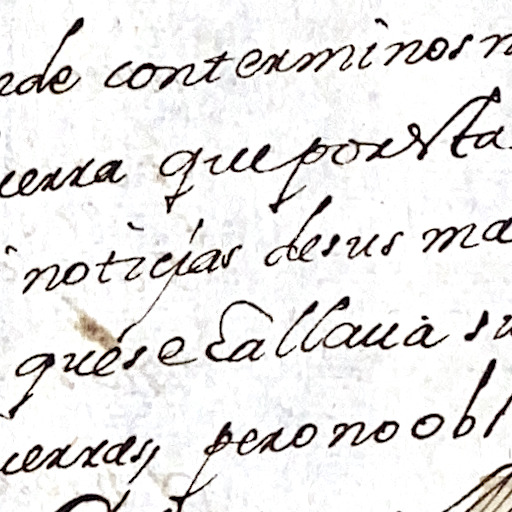 nde conterminos n
uerra que por esta
i noticias de sus ma
que se allaua su
uerras, pero no obl